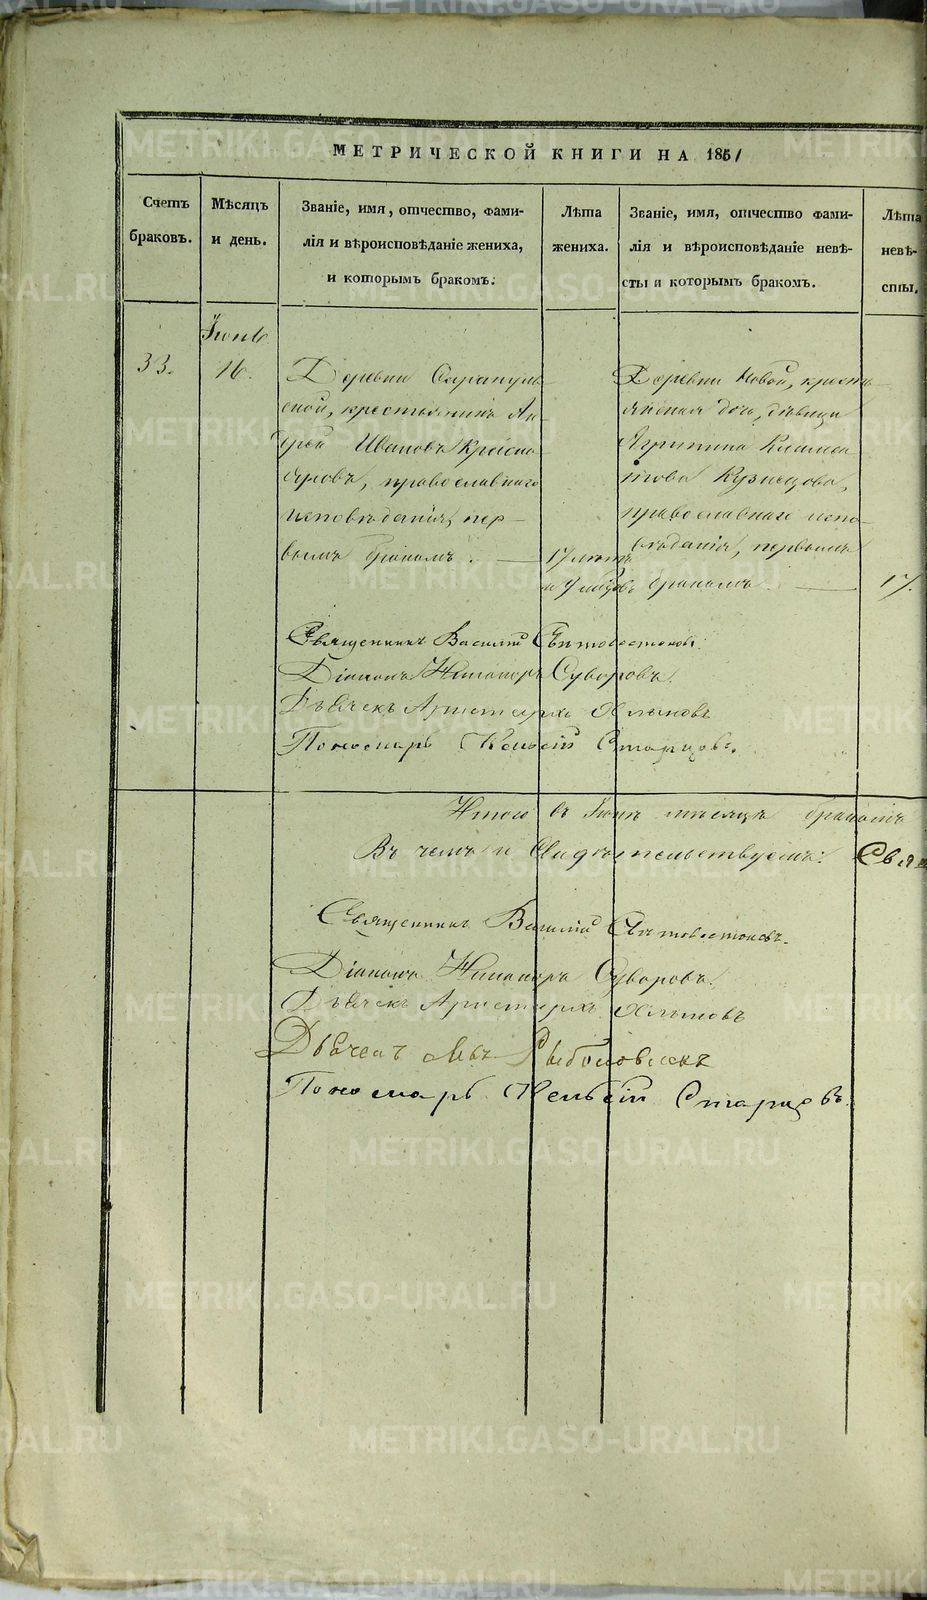 МЕТРИЧЕСКОЙ КНИГИ НА 1851
Счетъ браковъ.
Мѣсяцъ и день.
Званіе, имя, отчество, фами-
лія и вѣроисповѣданіе жениха,
и которымъ бракомъ.
Лѣта жениха.
Званіе, имя, отчество фами-
лія и вѣроисповѣданіе невѣ-
сты и которымъ бракомъ.
Лѣта невѣ-
сты.
Іюнь
33.
16.
Деревни Сарапуль
ской, крестьянинъ Ан
дрей Ивановъ Красно
яровъ, православнаго
исповѣданія, пер-
вымъ бракомъ.
17 лѣтъ
и 9 мѣсцовъ
Деревни Новой, кресть
янская дочь, дѣвица
Агрипина
Кузнецова,
православнаго испо-
вѣданія, первымъ
бракомъ.
17.
Священникъ Василій
Діаконъ Никаноръ Суворовъ.
Дьячекъ Аристархъ
Пономарь Старцовъ.
Итого въ Іюнѣ мѣсяцѣ браковъ
Въ чемъ и Свидѣтельствуемъ: Свя
Священникъ Василій
Діаконъ Никаноръ Суворовъ.
Дьячекъ Аристархъ
Дьячекъ
Пономарь Старцовъ.
METRIKI.GASO-URAL.RU